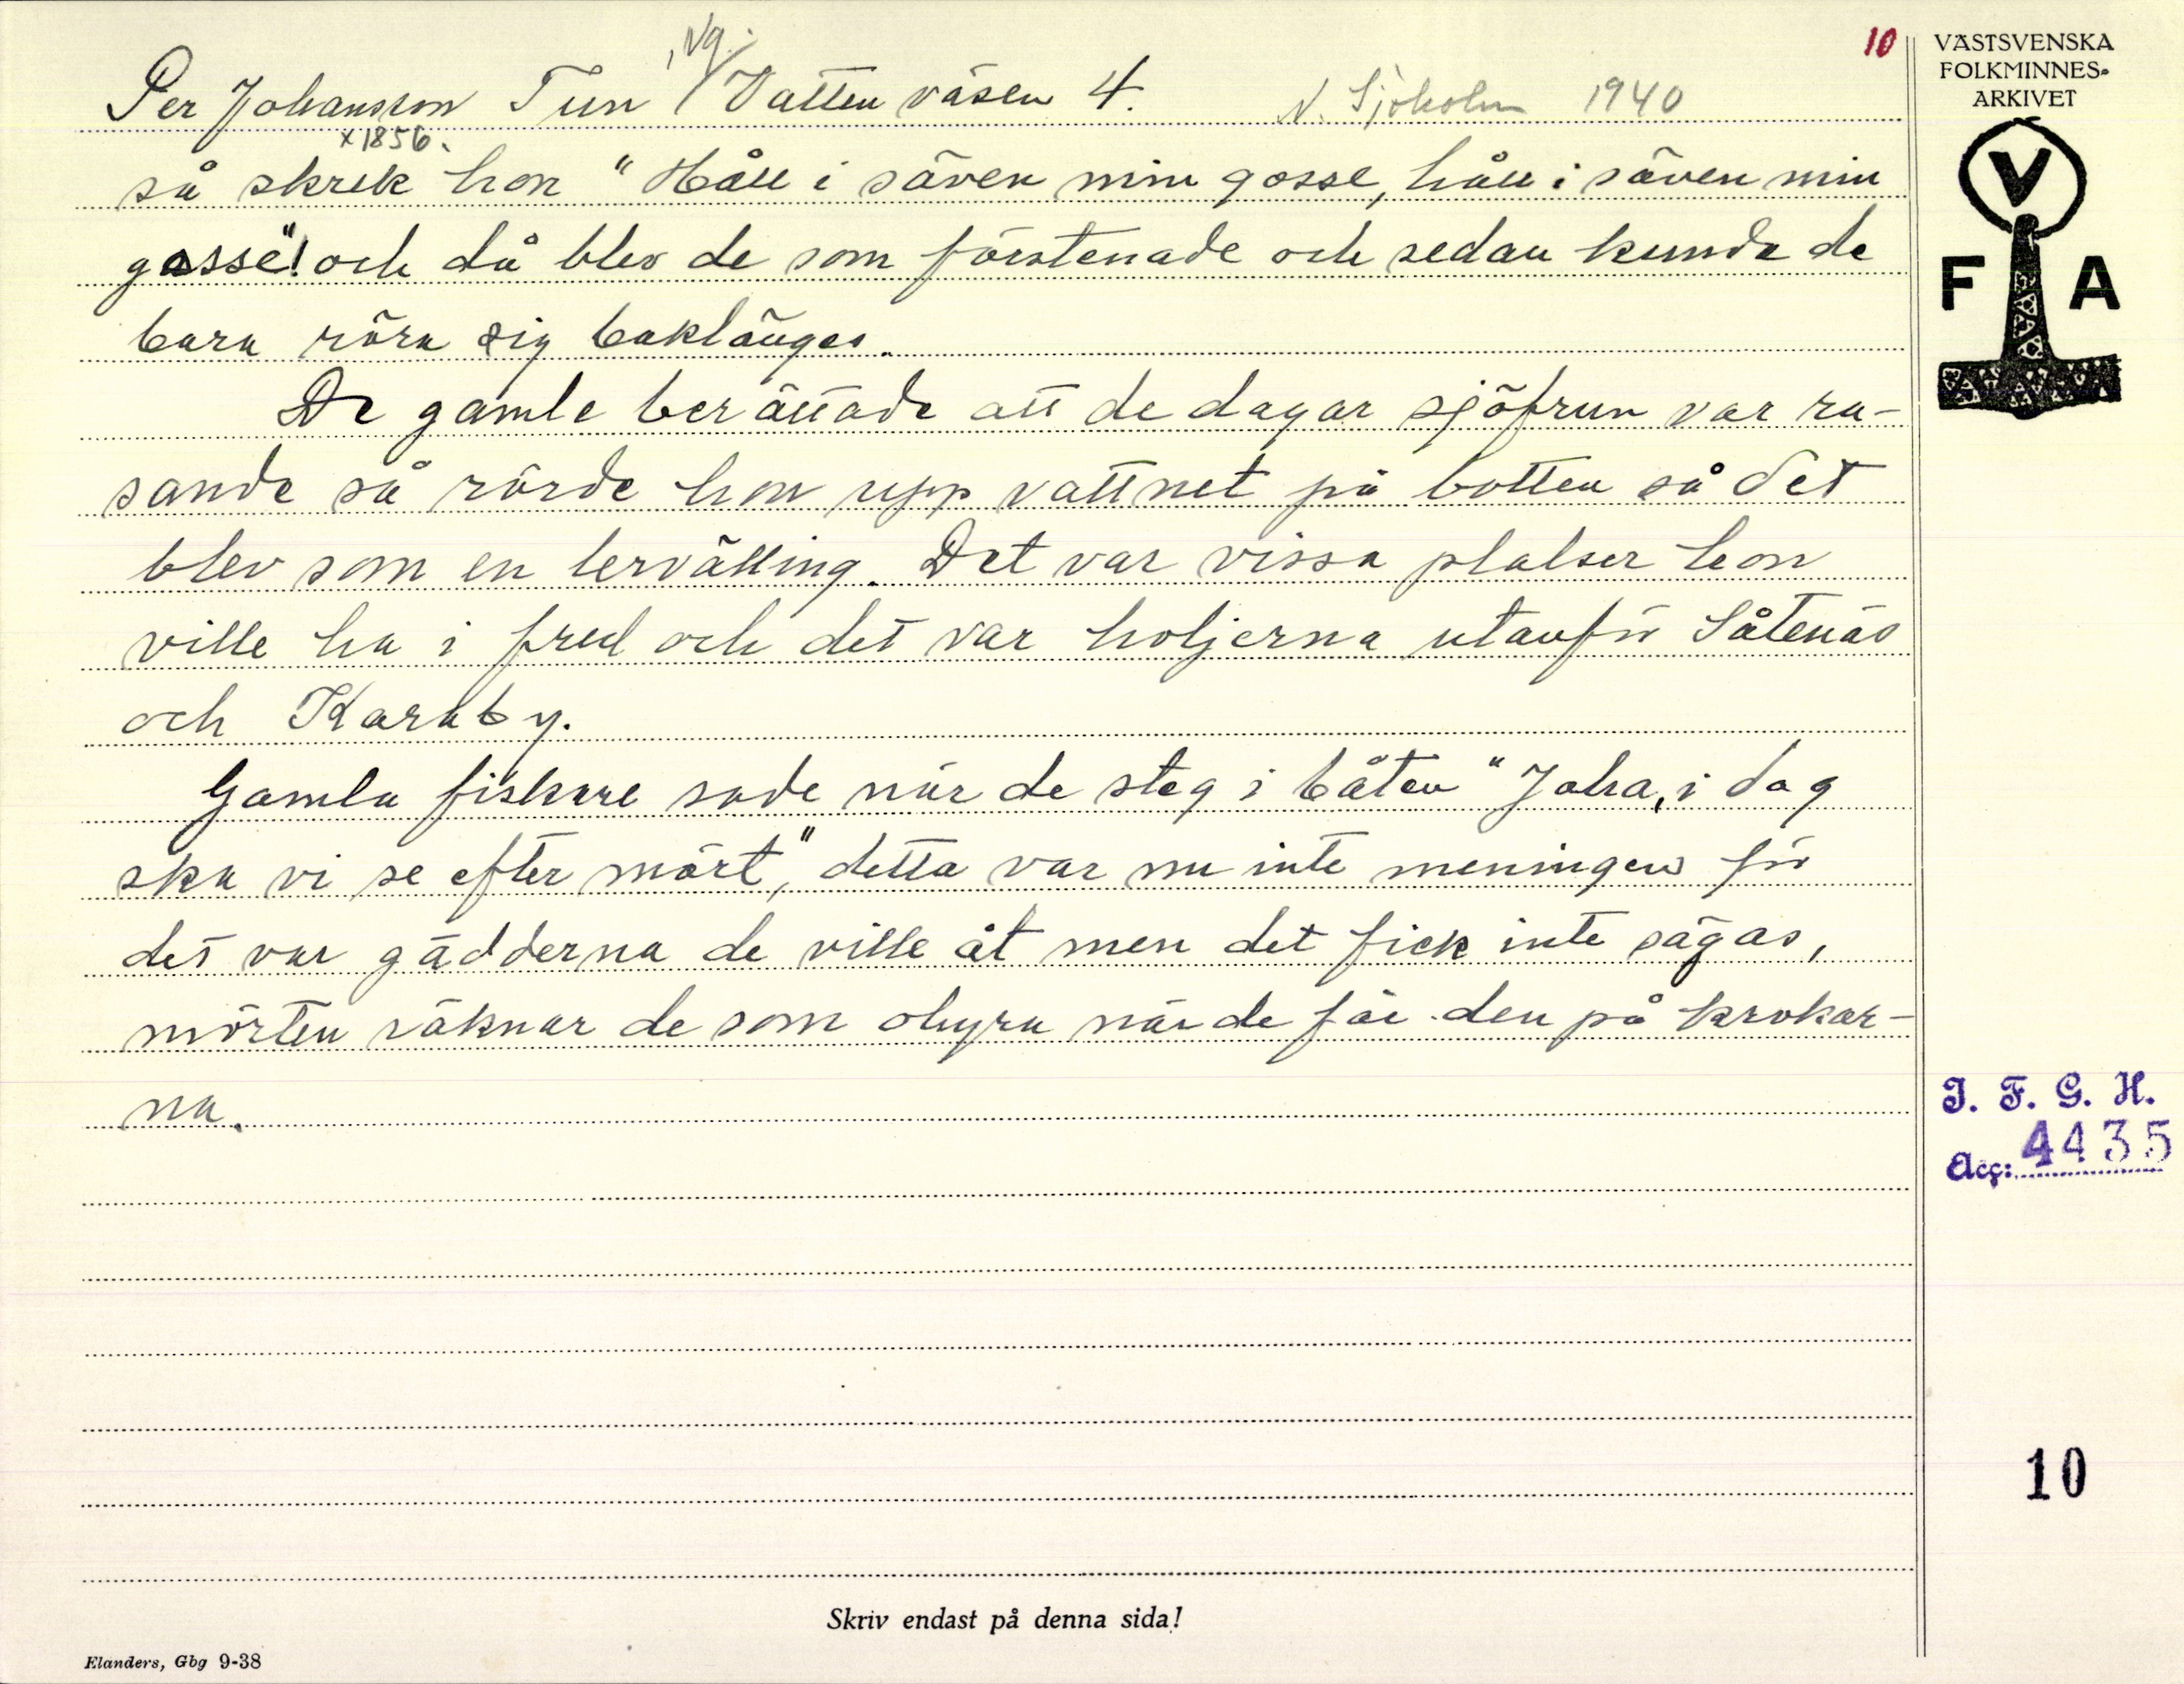 10
Per Johansson Tun, Vg. Vatten väsen 4. N. Sjöholm 1940
x 1856.
så skrek hon "Håll i säven min gosse, håll i säven min
gosse"! och då blev de som förstenade och sedan kunde de
bara röra sig baklänges.
De gamle berättade att de dagar sjöfrun var ra-
sande så rörde hon upp vattnet på botten så det
blev som en lervälling. Det var vissa platser hon
ville ha i fred och det var holjerna utanför Såtenäs
och Karaby.
Gamla fiskare sade när de steg i båten "Jaha, i dag
ska vi se efter mört", detta var nu inte meningen för
det var gädderna de ville åt men det fick inte sägas,
mörten räknar de som ohyra när de får den på krokar-
na.
VÄSTSVENSKA
FOLKMINNES-
ARKIVET
V
F A
I. F. G. H.
Acc: 4435
10
Skriv endast på denna sida!
Elanders, Gbg 9-38